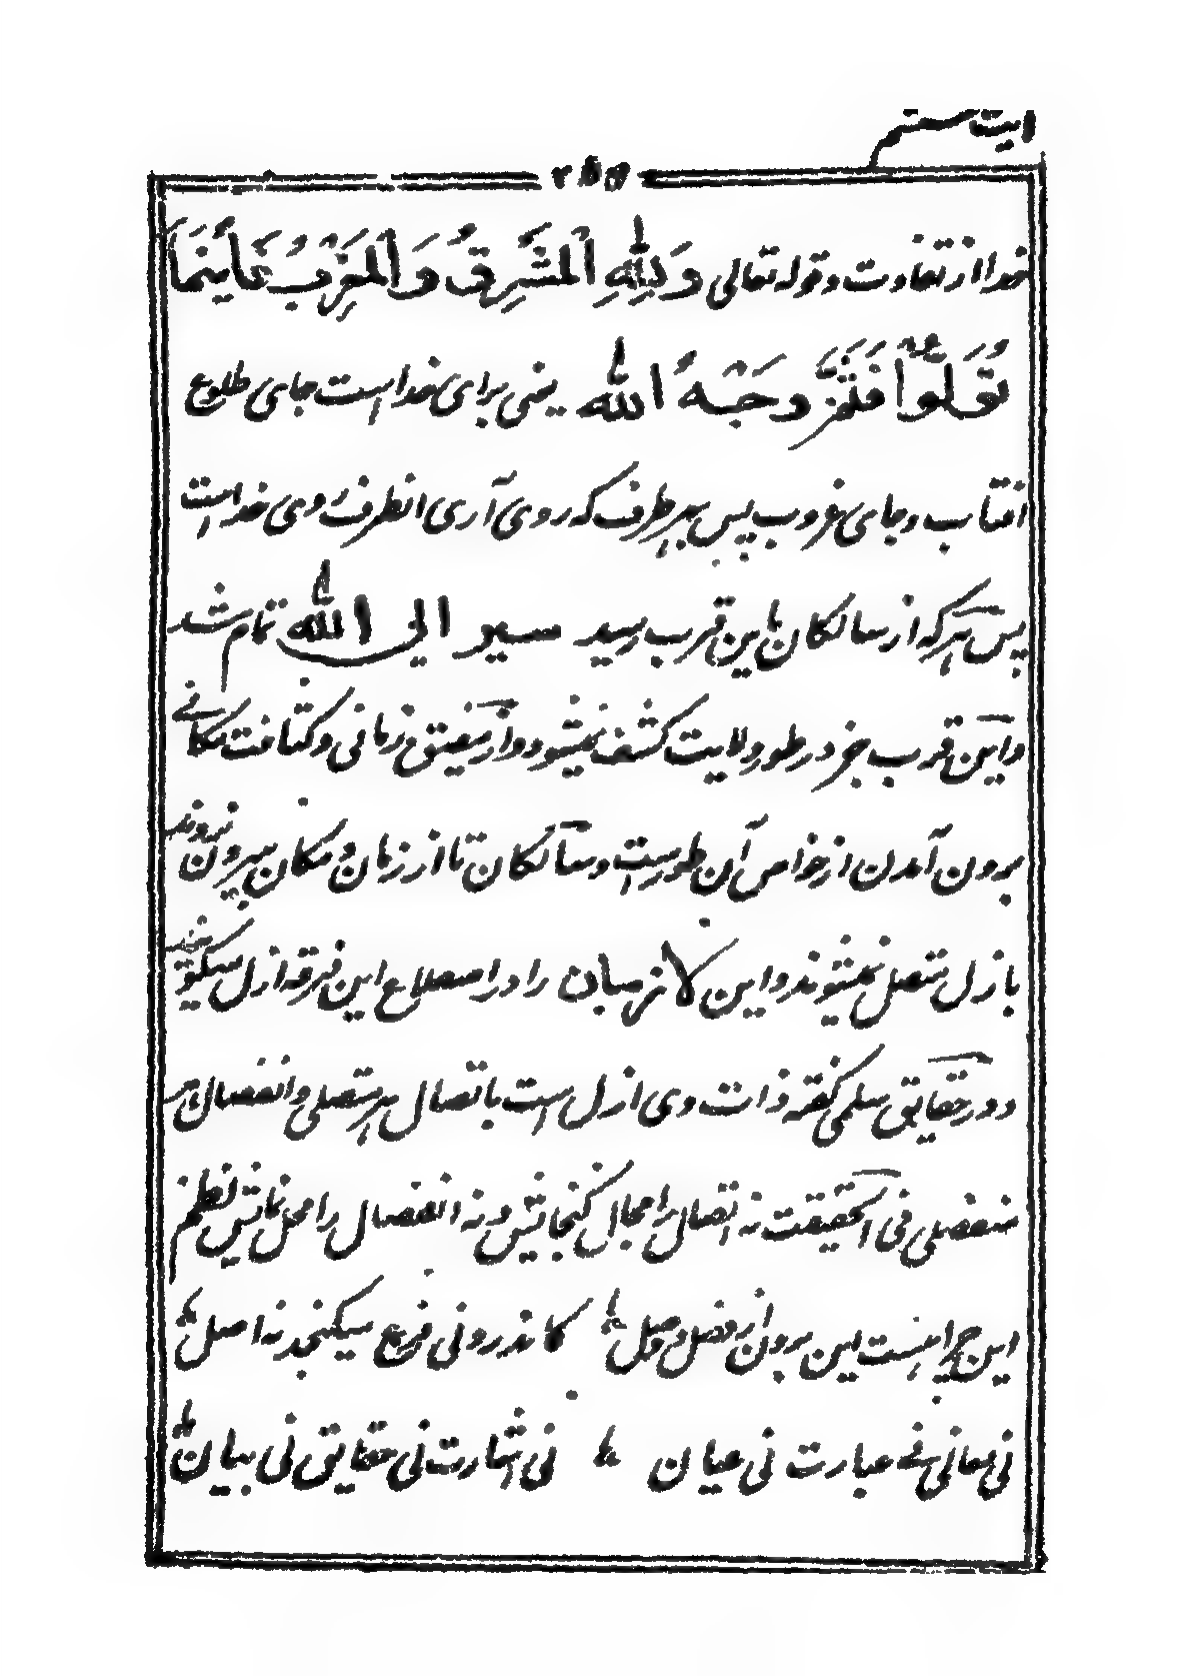 ایت ستم
۲۵۹
خدا از تفاوت و قوله تعالی وَلِلّٰهِ الْمَشْرِقُ وَالْمَغْرِبُ فَاَيْنَمَا
تُوَلُّوْا فَثَمَّ وَجْهُ اللّٰه یعنی برای خداست جای طلوع
افتاب و جای غروب پس بهر طرف که روی آری انطرف روی خداست
پس هر که از سالکان باین قرب رسید سیر الی اللّٰه تمام شد
و این قرب جز در طور ولایت کشف نمیشود و از مضیق زمانی و کثافت مکانے
برون آمدن از خواص آن طورست و سالکان تا از زمان و مکان بیرون نروند
بازل متصل نمیشوند و این لا زمان را در اصطلاح این فرقه ازل میگویند
و در حقایق سلمی گفته ذات وی ازل است با تصال هر متصلی و انفصال هر
منفصلی فی الحقیقت نه اتصال را مجال گنجائش و نه انفصال را محل نمایش نظم
این چراست این برون از فصل و وصل ؛ کاندرو نی فرع میگنجد نه اصل ؛
نی معانی نے عبارت نی عیان ؛ نی اشارت نی حقایق نی بیان ؛